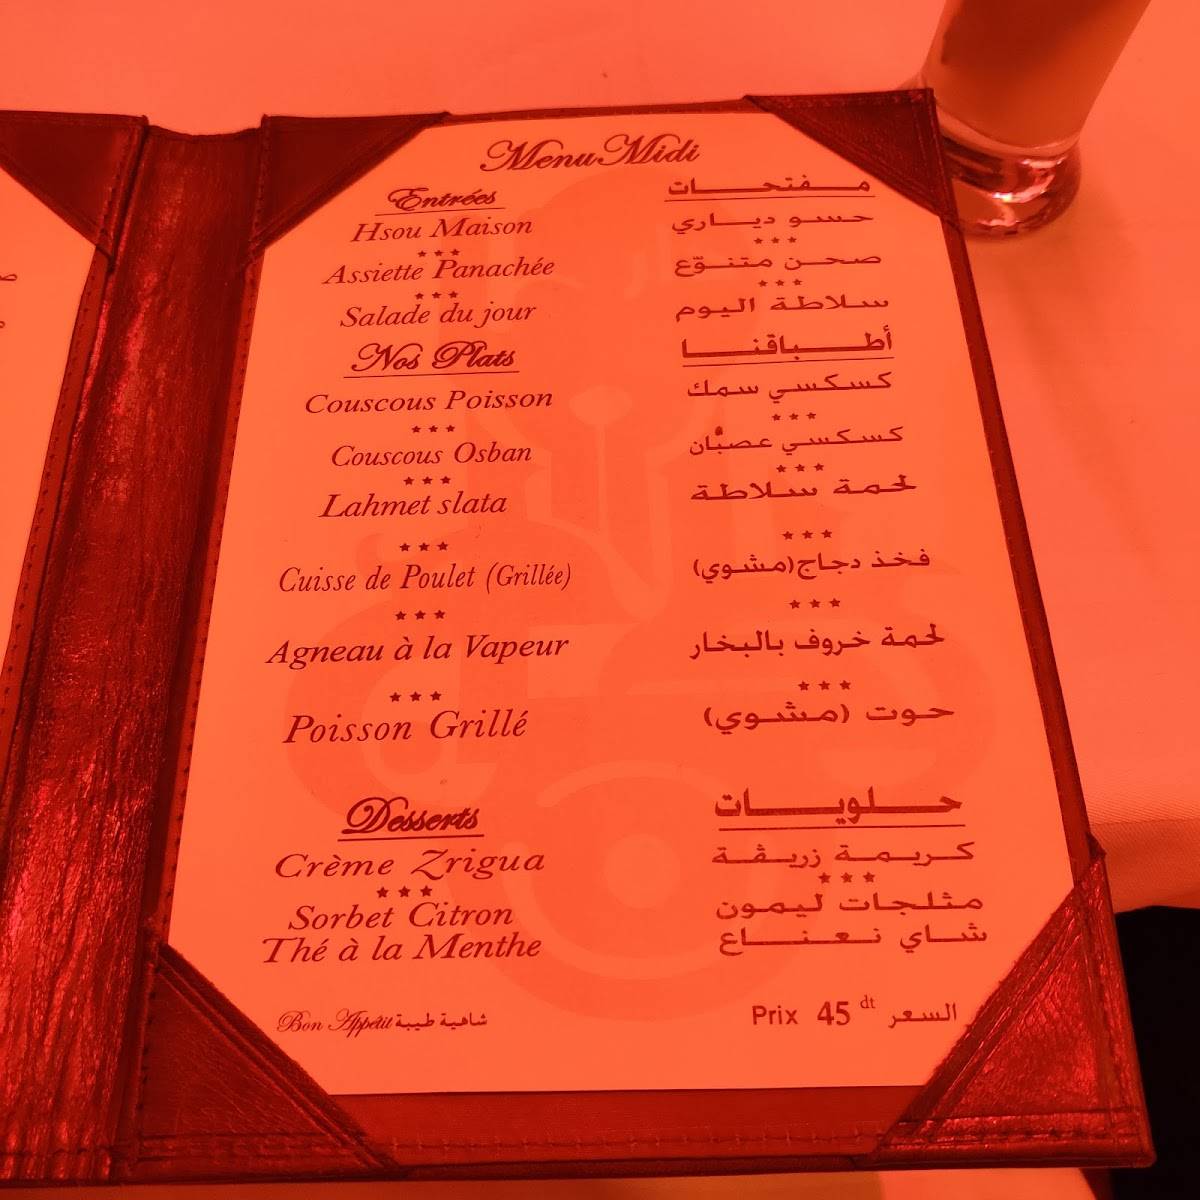 Menu Midi
Entrées مـفتحـات
Hsou Maison حسو ديـاري
Assiette Panachée صحـن متنـوّع
Salade du jour سلاطة اليـوم
Nos Plats أطـبـاقنـا
Couscous Poisson كسكسي سمك
Couscous Osban كسكسي عصبّان
Lahmet slata لحمة سـلاطة
Cuisse de Poulet (Grillée) فخذ دجاج(مشوي)
Agneau à la Vapeur لحمة خروف بالبخار
Poisson Grillé حوت (مشوي)
Desserts حـلويـات
Crème Zrigua كـريـمـة زريـڤـة
Sorbet Citron مثـلجـات ليمـون
Thé à la Menthe شـاي نـعنـاع
Bon Appétit شاهية طيبة Prix 45 dt السعر